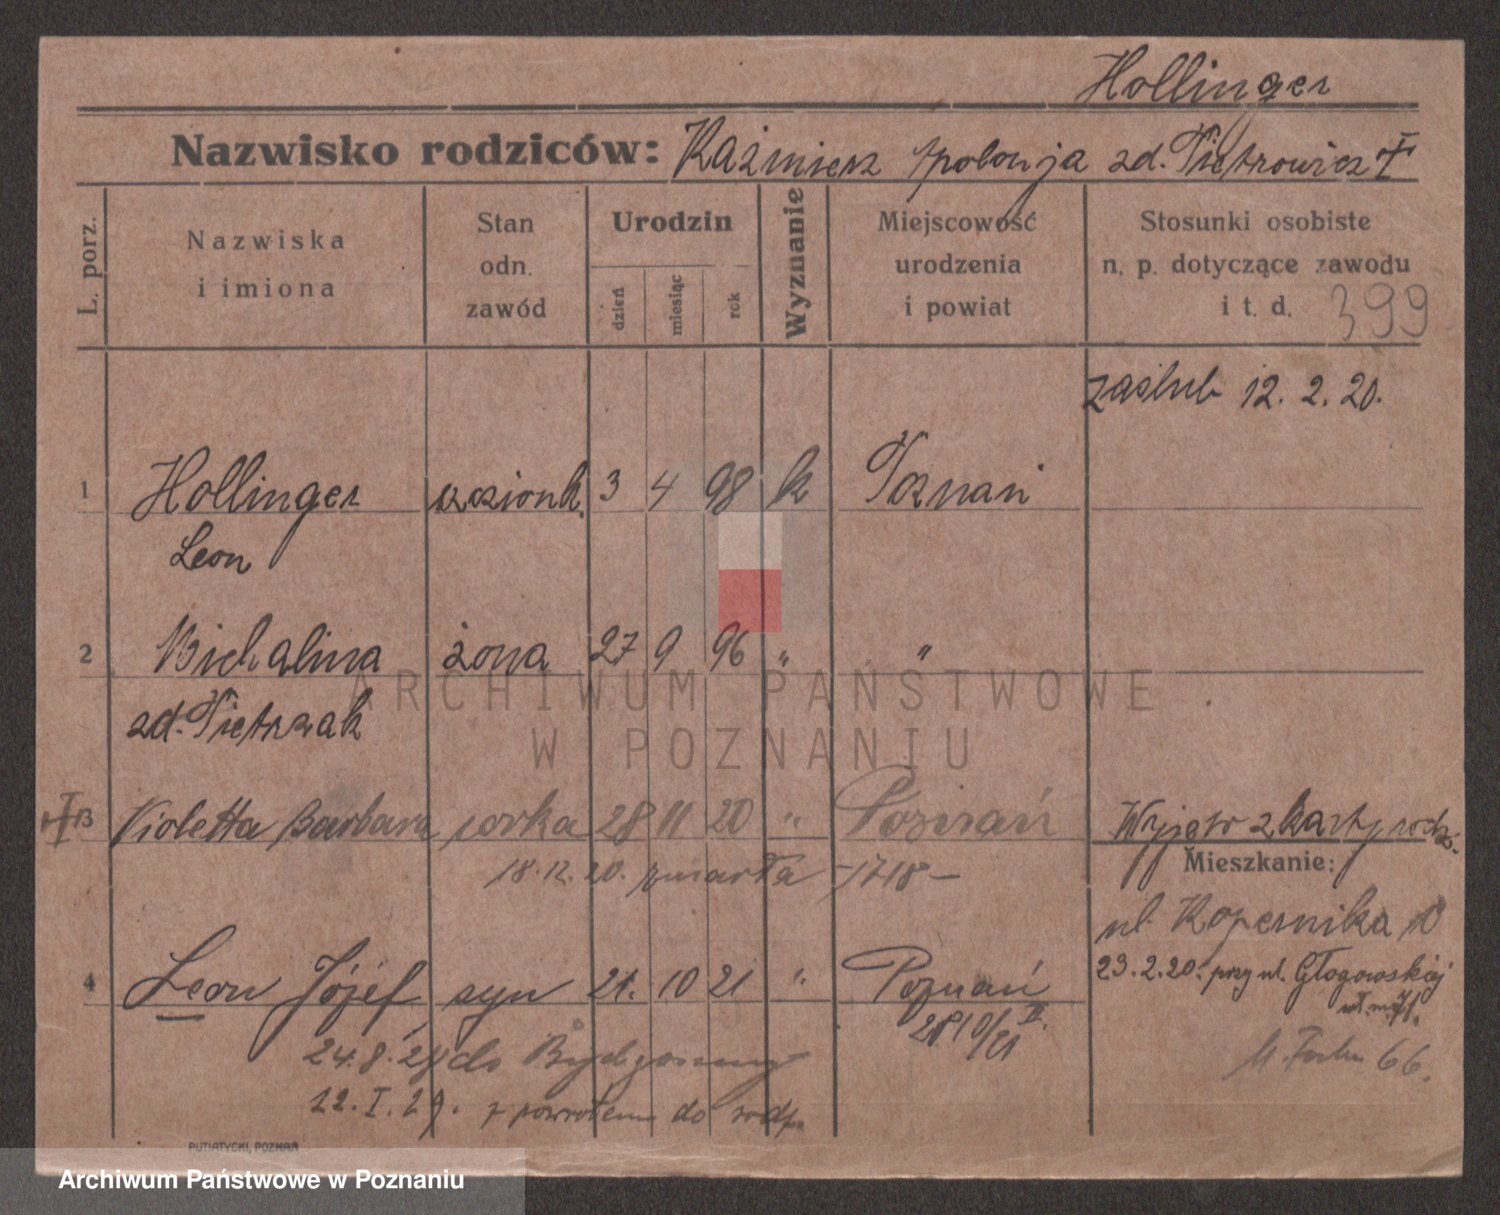 Hollinger
Nazwisko rodziców: Kaźmierz Apolonja zd. Pietrowicz †
L. porz.
Nazwiska i imiona
Stan odn. zawód
Urodzin
dzień
miesiąc
rok
Wyznanie
Miejscowość urodzenia i powiat
Stosunki osobiste n. p. dotyczące zawodu i t. d.
399
zaślub 12. 2. 20.
1 Hollinger 3 4 98 k Poznań
Leon
2 Michalina żona 27 9 96 " "
zd. Pietrzak
3 Violetta Barbara córka 28 11 20 " Poznań
Wyjęto z karty rodz.
18.12.20. zmarła -1718-
Mieszkanie:
ul. Kopernika 10
4 Leon Józef syn 21. 10 21 " Poznań
23.2.20. przy ul. Głogowskiej
2810/21
24.8.24 do Bydgoszczy
66.
22.I.27. z powrotem do rodz.
PUTIATYCKI, POZNAŃ
ARCHIWUM PAŃSTWOWE
W POZNANIU
Archiwum Państwowe w Poznaniu